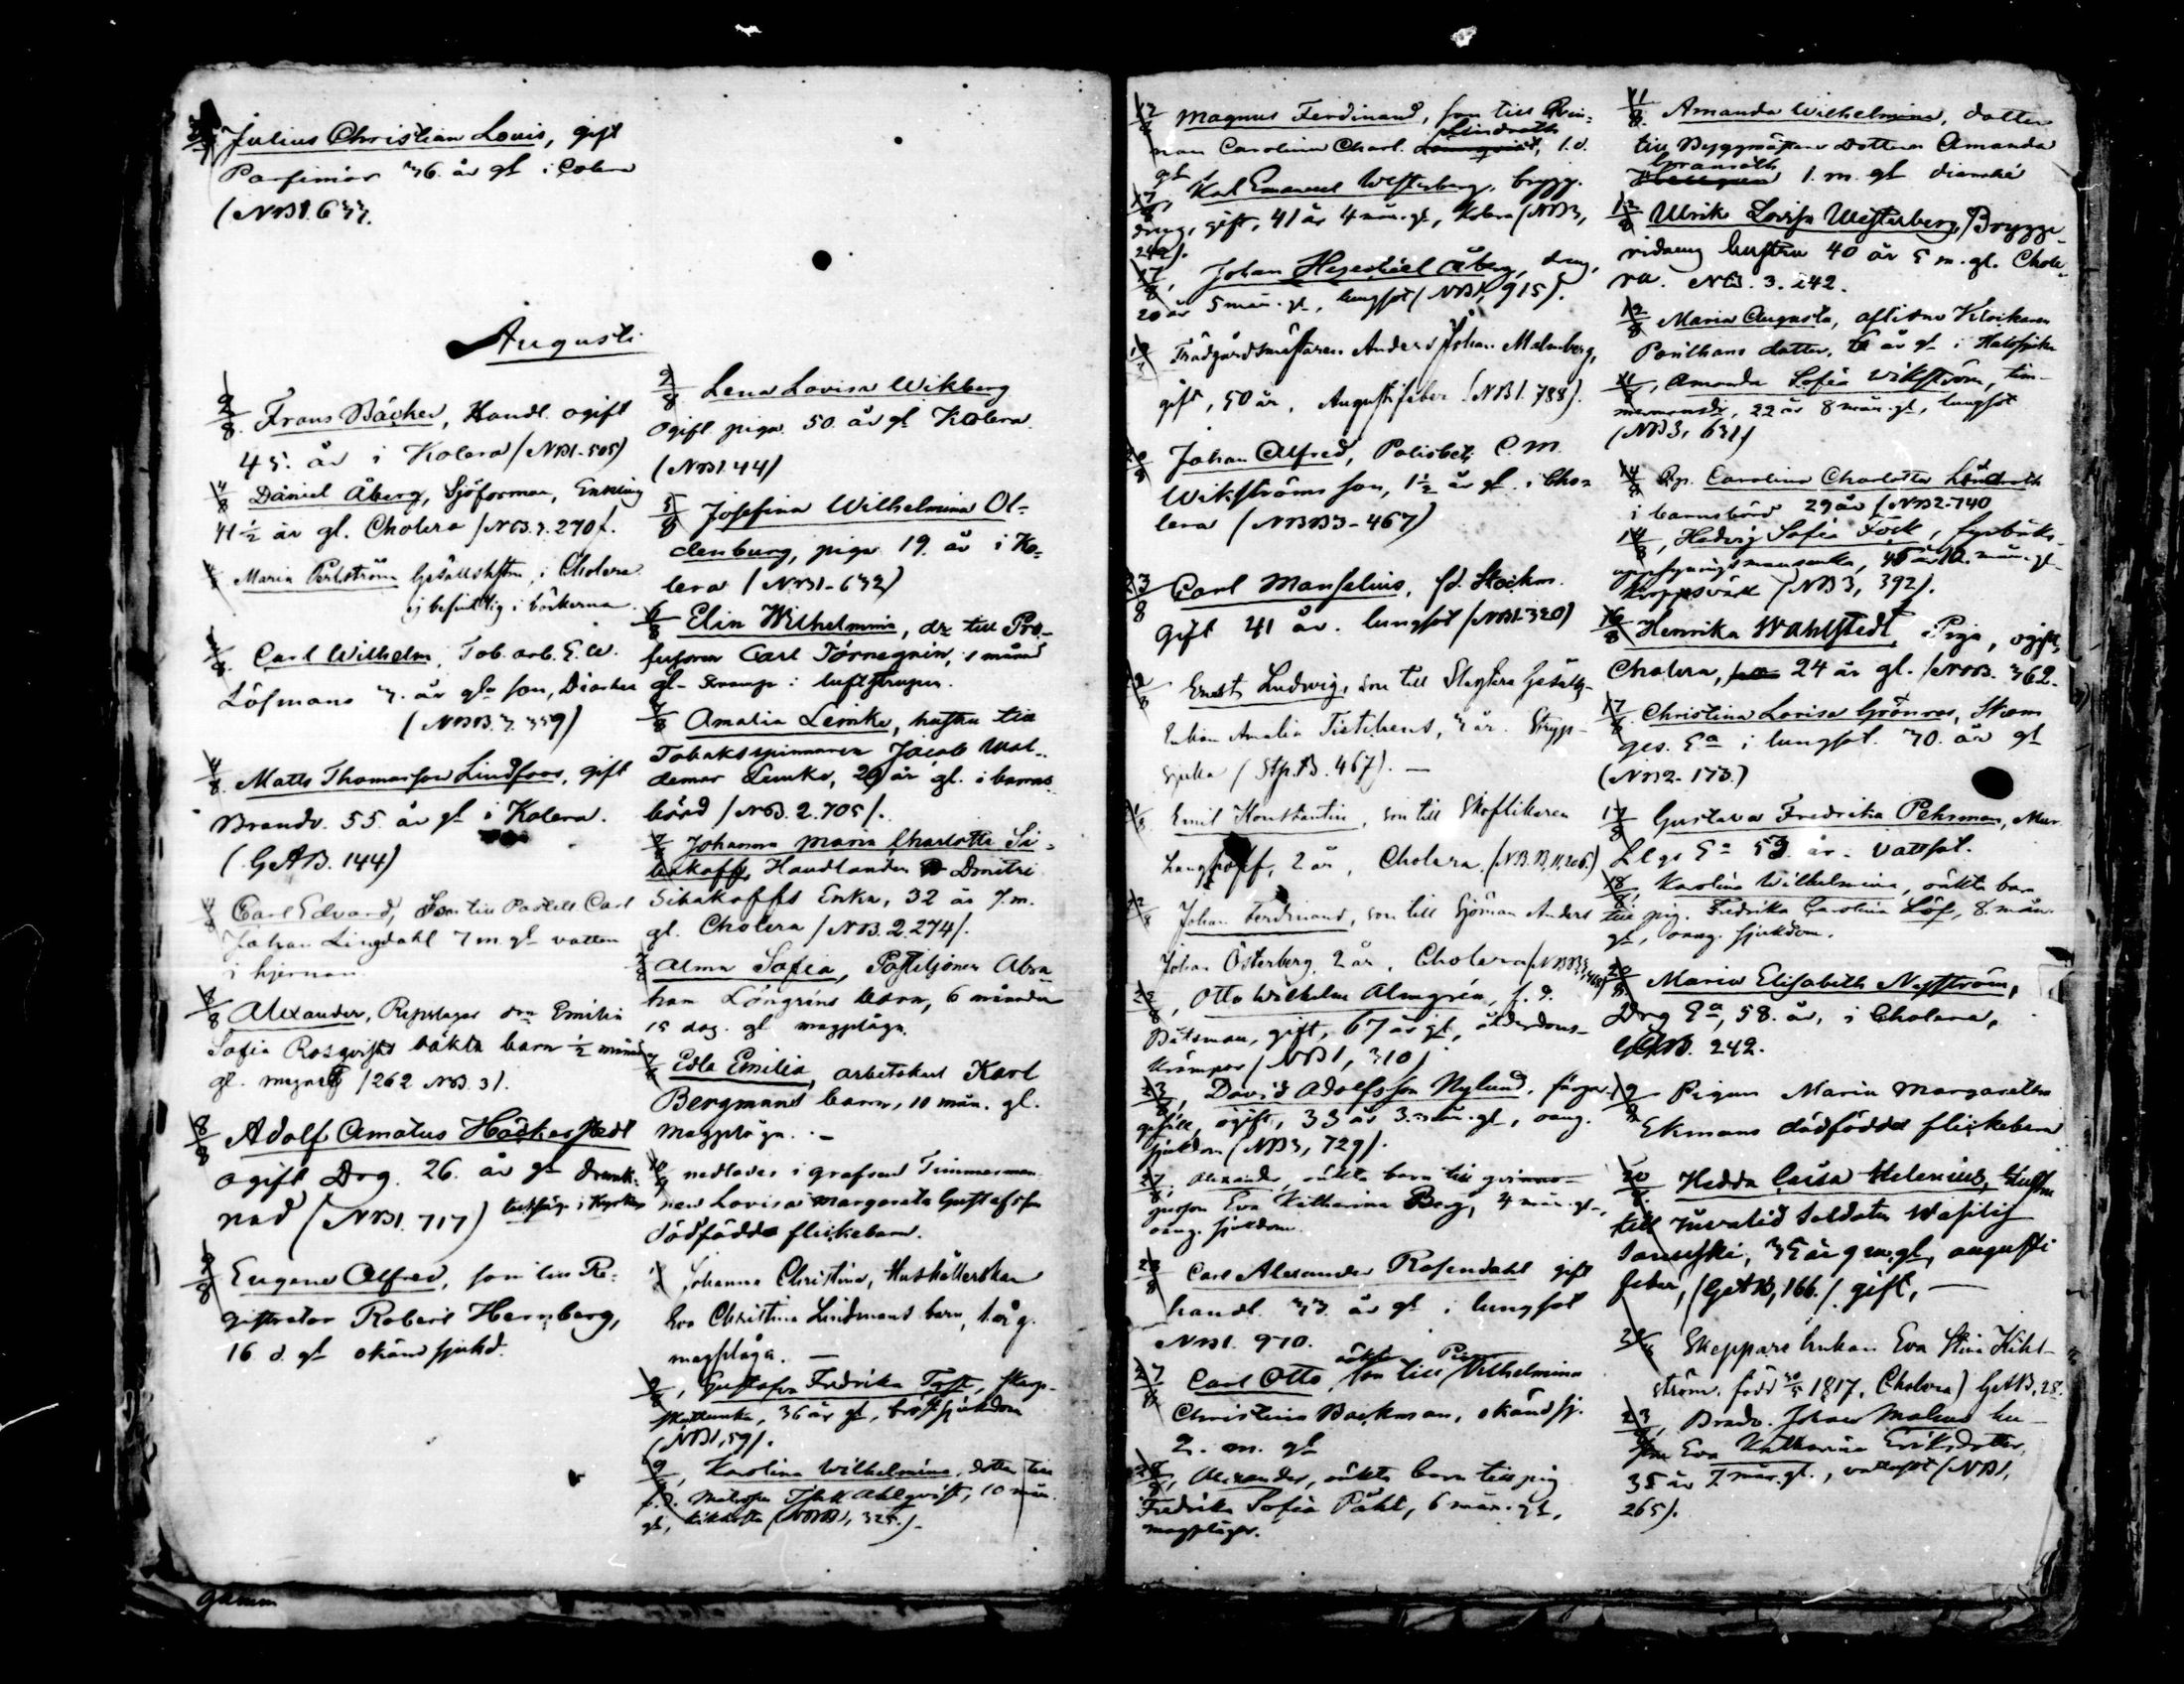 Julius Christian Louis, gift
Parfimör 36. år gl i Colera
(NB1.633.
Augusti
2/8. Frans Bäcker, Handl. ogift
45. år i Kolera (NB1-505)
4/8 Daniel Åberg, Sjöforman, Enkling
41 1/2 år gl. Cholera (NB.3.270).
Maria Perlström Gesällshstru, i Cholera
ej befintlig i böckerna.
Carl Wilhelm, Tob. arb. E. W.
Löfmans 3. år gls son, Diarhee
(NBB.3.359)
4/8. Matts Thomasson Lindfors, gift
Brandv. 55. år gl i Kolera.
(GAB.144)
4/8 Carl Edvard, Son till Postill. Carl
Johan Lingdahl 7 m. gl vatten
i hjernan.
Alexander, Repslagar Emilia
Sofia Rosqvists oäkta barn 1/2 månad
gl. (262 NB.3).
8/8 Adolf Amatus Häckerstedt
ogift Drg. 26. år gl drunk-
nad (NB1.717)
9/8 Eugene Alfred, son till Re-
gistrator Robert Hernberg,
16 d. gl okänd sjukd.
2/8 Lena Lovisa Wikberg
Ogift piga 50. år gl Kolera
(NB1.44)
5/8 Josefina Wilhelmina Ol-
denburg, piga 19. år i Ko-
lera (NB1-632)
6/8 Elin Wilhelmina, dr till Pro-
fessoren Carl Törnegrén, 1 månad
gl- Kramp i luftstrupen.
7/8 Amalia Lemke, hustru till
Tobaksspinnaren Jacob Wol-
demar Lemke, 29 år gl. i barns
börd (NB.2.705).
7/8 Johanna Maria Charlotta Si-
bakoff, Handlanden Dmitri
Sibakoffs Enka, 32 år 7.m.
gl. Cholera (NB.2.274).
7/8 Alma Sofia, Postiljonen Abra-
ham Löngréns barn, 6 månader
15 dag. gl magplåga.
Edla Emilia, arbetskarl Karl
Bergmans barn, 10 mån. gl.
magplåga. -
nedlades i grafven Timmerman
Lovisa Margareta Gustafsson
dödfödda flickebarn.
Johanna Christina, Hushållerskan
Eva Christina Lindmans barn, 1 år g.
magplåga. -
9/8, Gustafva Fredrika Tast, skarp-
skuttenka, 36 år gl, bröstsjukdom
(NB1,59).
9/8, Karolina Wilhelmina, dotter till
Matrosen Isak Ahlqvist, 10 mån.
gl, kikhosta (NB1, 325.)-
Magnus Ferdinand, son till Qvin-
nan Carolina Charl. Lindroth, 1.d.
gl
17/8, Karl Emanuel Westerberg, brygg-
dreng, gift, 41 år 4 mån. gl, Kolera (NB3,
242).
17/8, Johan Hesekiel Åberg, dreng,
20 år 5 mån. gl, lungsot (NB1, 915).
Trädgårdsmästaren Anders Johan Malmberg,
gift, 50 år, Augustifeber (NB1.788).
Johan Alfred, Polisbetj. C.M.
Wikströms son, 1 1/2 år gl. i Cho-
lera (NBB3-467)
23/8 Carl Manselius, fd. Stockm.
Gift 41 år. lungsot (NB1-320)
Ernst Ludwig, son till Slagtare Gesälls
Enkan Amalia Tistelbent, 3 år. Stryp-
sjuka (Stp.B.467). -
Emil Konstantin, son till Skoflikaren
2 år, Cholera.
Johan Ferdinand, son till Sjöman Anders
Johan Österberg, 2 år, Cholera
22/8, Otto Wilhelm Almgrén, f.d.
Båtsman, gift, 67 år gl, ålderdoms-
krämpor (NB1, 310)
23/8, David Adolfsson Nylund, färgar-
gesäll, ogift, 33 år 3 mån. gl, oang.
sjukdom (NB3, 729).
27/8, Alexander, oäkta barn till qvinns-
person Eva Katharina Berg, 4 mån. gl,
oang. sjukdom.
23/8 Carl Alexander Rosendahl gift
handl. 33. år gl i lungsot
NB1. 970.
27/8 Carl Otto, oäkta son till Pig. Wilhelmina
Christina Backman, okänd sj.
2. m. gl
28/8, Alexander, oäkta barn till pig
Fredrika Sofia Påhl, 6 mån. gl,
magplågor.
11/8. Amanda Wilhelmina, dotter
till Byggmästare Dottren Amanda
Granroth 1. m. gl diarrhé
12/8 Ulrik Lovisa Westerberg, Brygge-
ridreng hustru 40 år 5 m. gl. Chole-
ra. NB. 3. 242.
12/8 Maria Augusta, aflidne Klockaren
dotter, år gl i Halssjuka
11/8, Amanda Sofia Wikström, tim-
mermansdr, 22 år 8 mån. gl, lungsot
(NB3, 631)
14/8 Pig. Carolina Charlotta Lindroth
i barnsbörd 29 år (NB2-740
14/8, Hedvig Sofia Fock, fyrbåks-
uppsyningsmansenka, 45 år 10 mån. gl
kroppsvärk (NB3, 392).
16/8 Henrika Wahlstedt, Piga, ogift,
Cholera, 24 år gl. (NB. 362.
17/8. Christina Lovisa Grönroos, Skom
ges. Ea i lungsot. 70. år gl
(NB2-173.)
17/8 Gustava Fredrika Pehrman, Mur.
Llgs Ea 59. år. Vattsot.
18/8, Karolina Wilhelmina, oäkta barn
till pig. Fredrika Carolina Löf, 8. mån.
gl, oang. sjukdom.
20/8. Maria Elisabeth Nyström,
Drg Ea, 58. år, i Cholera,
GAB. 242.
19/8 Pigan Maria Margaretha
Ekmans dödfödda flickebarn
20/8. Hedda Caisa Helenius, Hustru
till Invalid Soldaten Wasilij
35 år 9 m. gl, augusti
feber, (GAB,166.) gift, -
Skeppare Enkan Eva Stina Kihl-
ström, född 30/5 1817, Cholera) GAB, 28.
23/8, Brandv. Johan Malms hu-
stru Eva Katharina Eriksdotter,
35 år 7 mån. gl., vattusot (NB1,
265).